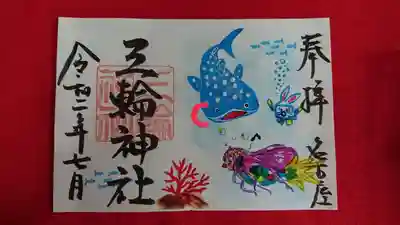 奉拝
名古屋
三輪神社
令和二年七月